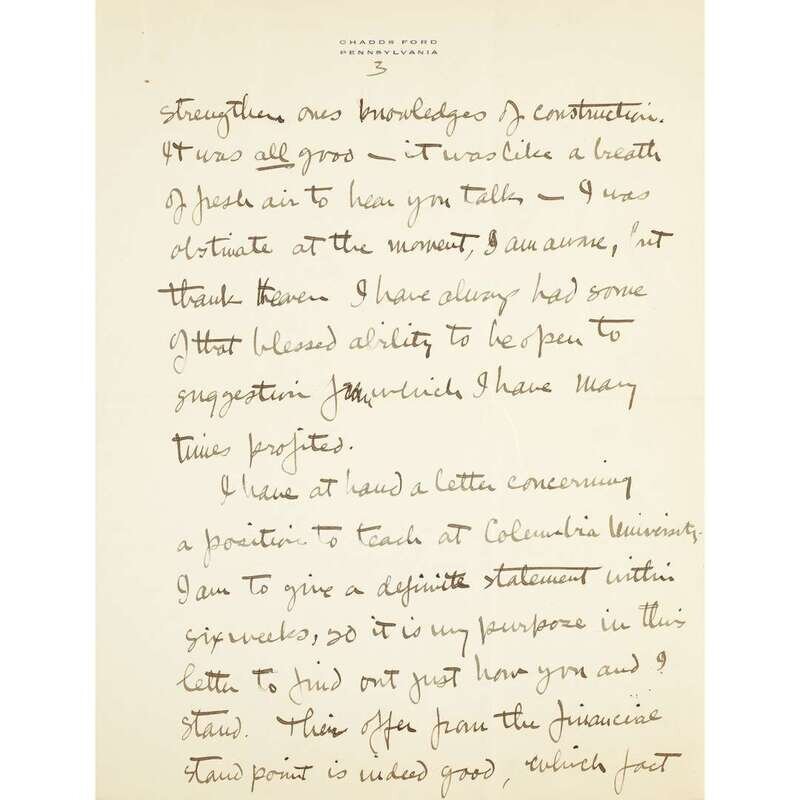 CHADDS FORD
PENNSYLVANIA
3
strengthen ones knowledges of construction.
It was all good — it was like a breath
of fresh air to hear you talk — I was
obstinate at the moment, I am aware, but
thank Heaven I have always had some
of that blessed ability to be open to
suggestion from which I have many
times profited.
I have at hand a letter concerning
a position to teach at Columbia University.
I am to give a definite statement within
six weeks, so it is my purpose in this
letter to find out just how you and I
stand. Their offer from the financial
stand point is indeed good, which fact